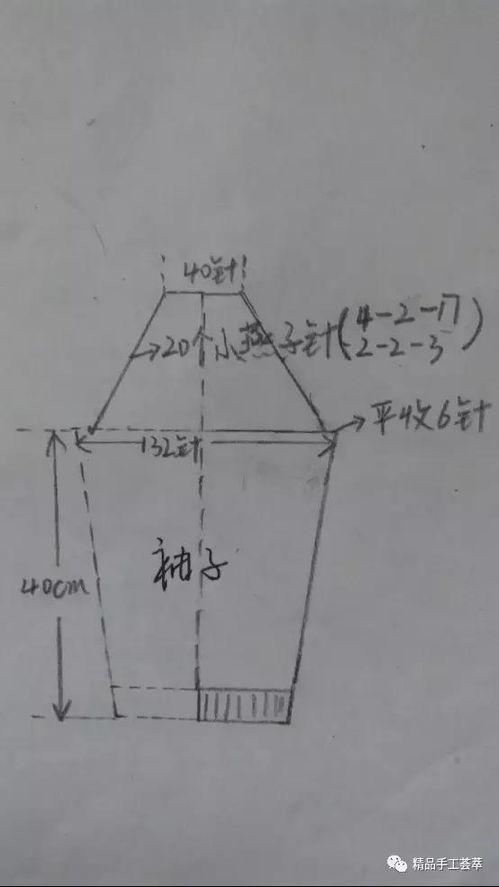 40针
20个小燕子针(4-2-17
2-2-3)
平收6针
132针
袖子
40cm
精品手工荟萃